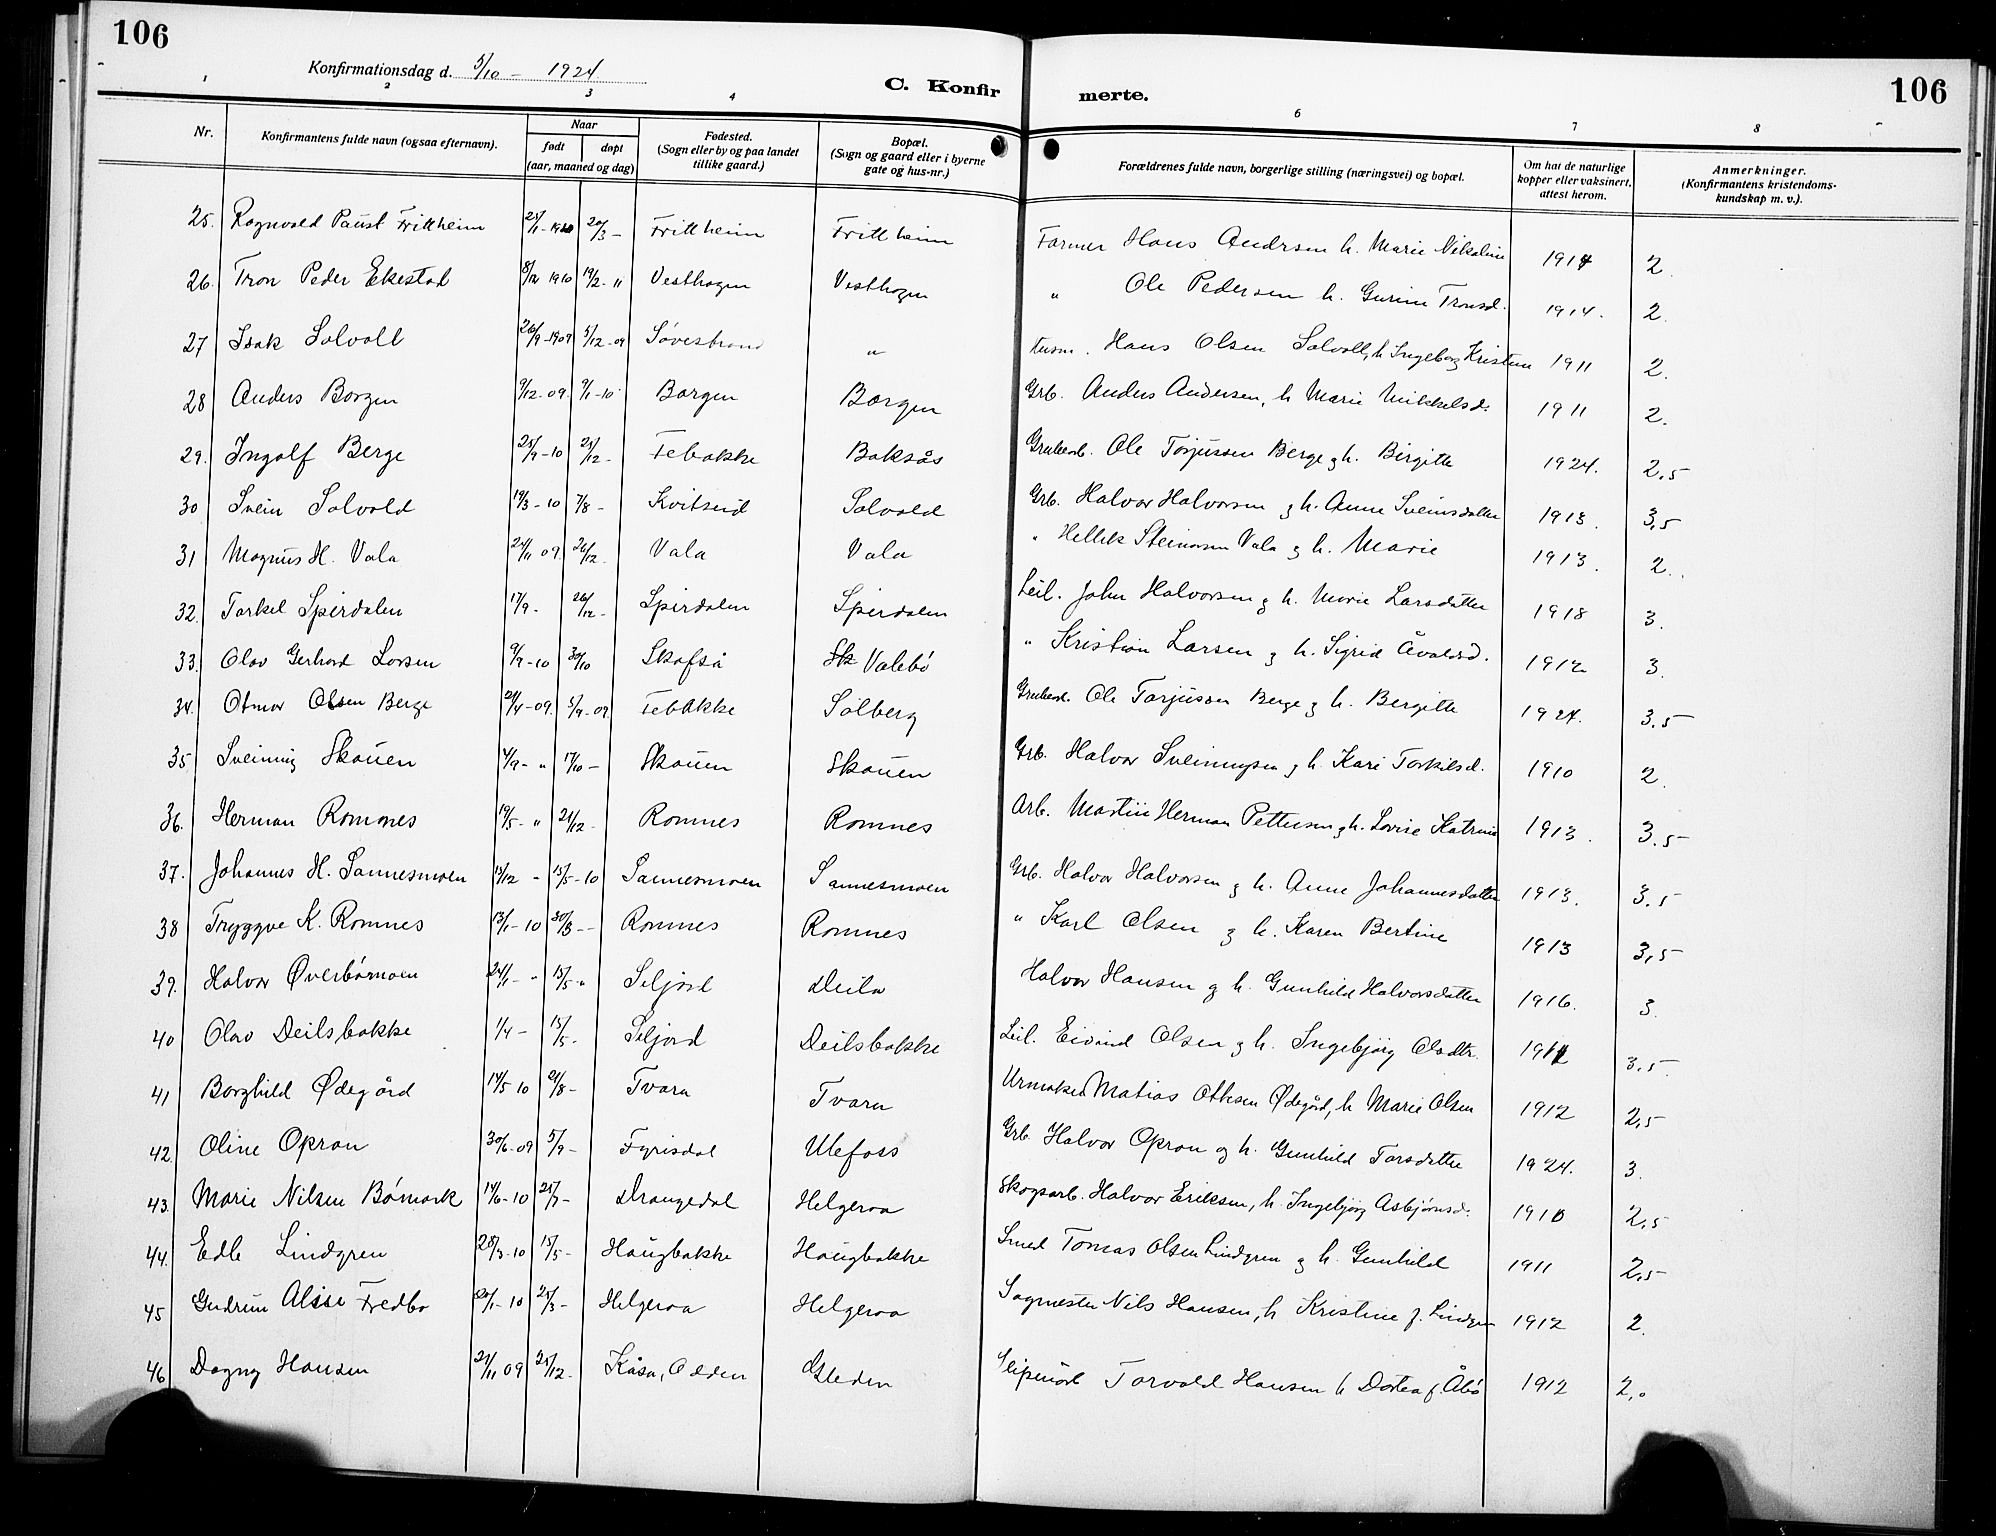 106
106
Konfirmationsdag d. 5/10 - 1924
C. Konfir
merte.
1 2 3 4 6 7 8
Nr.
Konfirmantens fulde navn (ogsaa efternavn).
Naar
født
døpt
(aar, maaned og dag)
Fødested.
(Sogn eller by og paa landet
tillike gaard.)
Bopæl.
(Sogn og gaard eller i byerne
gate og hus-nr.)
Forældrenes fulde navn, borgerlige stilling (næringsvei) og bopæl.
Om hat de naturlige
kopper eller vaksinert,
attest herom.
Anmerkninger.
(Konfirmantens kristendoms-
kundskap m. v.).
25. Ragnvald Paust Frittheim 25/1-1910 20/3- Frittheim Frittheim Farmer Hans Andrsen h. Marie Nikoline 1914 2.
26. Tron Peder Ekestad 8/12 1910 19/2- " Vesthagen Vesthagen " Ole Pedersen h. Gurine Tronsd. 1914. 2.
27 Isak Solvoll 26/9-1909 5/12-09 Søvestrand " Husm. Hans Olsen Solvoll, h Ingeborg Kristine 1911 2.
28 Anders Borgen 9/12-09. 9/1-10 Borgen Borgen Grb. Anders Andersen, h Marie Mikkelsd. 1911 2.
29. Ingolf Berge 25/9-10 25/12- Febakke Baksås Grubearb. Ole Torjussen Berge g h. Birgitte 1924. 2,5
30 Svein Solvold 19/3-10 7/8- Kvitseid Solvold Grb. Halvor Halvorsen g h. Anne Sveinsdatter 1913. 3,5
31 Magnus H. Vala 24/11 09. 26/12- Vala Vala " Hellek Steinarsen Vala g h. Marie 1913. 2.
32. Torkel Spirdalen 17/9- 26/12- Spirdalen Spirdalen Leil. John Halvorsen g h. Marie Larsdatter 1918 3.
33. Olav Gerhard Larsen 9/9-10 30/10 Skafså Valebø " Kristian Larsen g h. Sigrid Åvaldsd. 1912 3.
34. Otmar Olsen Berge 21/4-09. 5/9-09. Febakke Solberg Grubearb. Ole Torjussen Berge g h. Bergitte 1924. 3.5
35. Sveinung Skouen 4/9- " 17/10- Skouen Skouen Grb. Halvor Sveinungsen g h. Kari Torkilsd. 1910 2.
36. Herman Romnes 19/5- " 21/12- Romnes Romnes Arb. Martin Herman Pettersen g h. Lovise Katrine 1913. 3.5
37. Johannes H. Sannesmoen 13/12 - 15/5-10 Sannesmoen Sannesmoen Grb. Halvor Halvorsen g h. Anne Johannesdatter 1913. 3.5
38 Tryggve K. Romnes 13/1-10 30/3-- Romnes Romnes " Karl Olsen g h. Karen Bertine 1913 3,5
39. Halvor Øverbømoen 24/1- " 15/5-" Seljord Deila Halvor Hansen g h. Gunhild Halvorsdatter 1916. 3.
40 Olav Deilsbakke 1/4- 15/5- Seljord Deilsbakke Leil. Eivind Olsen g h. Ingebjørg Olsdtr. 3.5
41 Borghild Ødegård 14/5 10 21/8- Tvara Tvara Urmaker Matias Ottesen Ødegård, h Marie Olsen 1912 2,5
42. Oline Opran 30/6-09 5/9- Fyrisdal Ulefoss Grb. Halvor Opran og h. Gunhild Torsdatter 1924. 3.
43. Marie Nilsen Bømark 14/6-10 25/7- Drangedal Helgeroa Skogsarb. Halvor Eriksen, h. Ingebjørg Asbjørnsd. 1910 2,5
44. Edle Lindgren 28/3-10 15/5- Haugbakke Haugbakke Smed Tomas Olsen Lindgren g h. Gunhild 1911 2,5
45 Gudrun Alise Fredbo 20/1-10 25/3- Helgeroa Helgeroa Sagmester Nils Hansen, h Kristine f. Lindgren 1912 2.
46 Dagny Hansen 21/11 09 25/12- Kåsa, Olden Sleden Sliperiarb Torvald Hansen h Dortea f. Åbø 1912 2,0